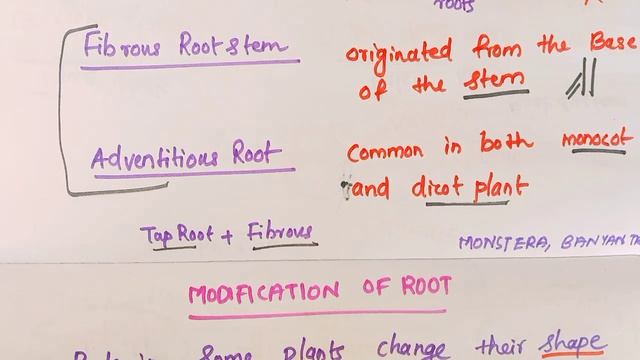 roots
Fibrous Rootstem originated from the Base
of the stem
Adventitious Root Common in both monocot
and dicot plant
Tap Root + Fibrous
MONSTERA, BANYAN
MODIFICATION OF ROOT
Some plants change their shape